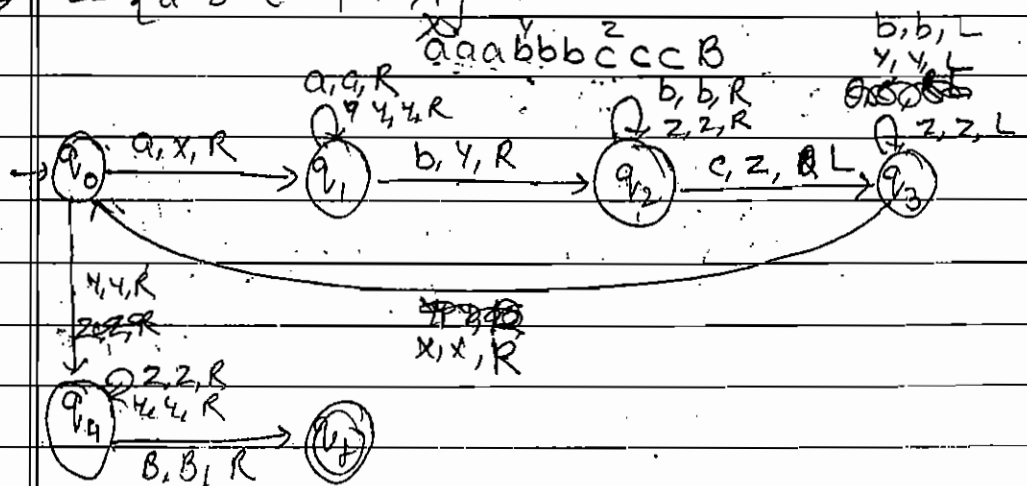 x y z
a a a b b b c c c B
b, b, L
y, y, L
a, a, R
y, y, R
b, b, R
z, z, R
z, z, L
q0
a, x, R
q1
b, y, R
q2
c, z, L
q3
y, y, R
x, x, R
q4
z, z, R
y, y, R
B, B, R
qf